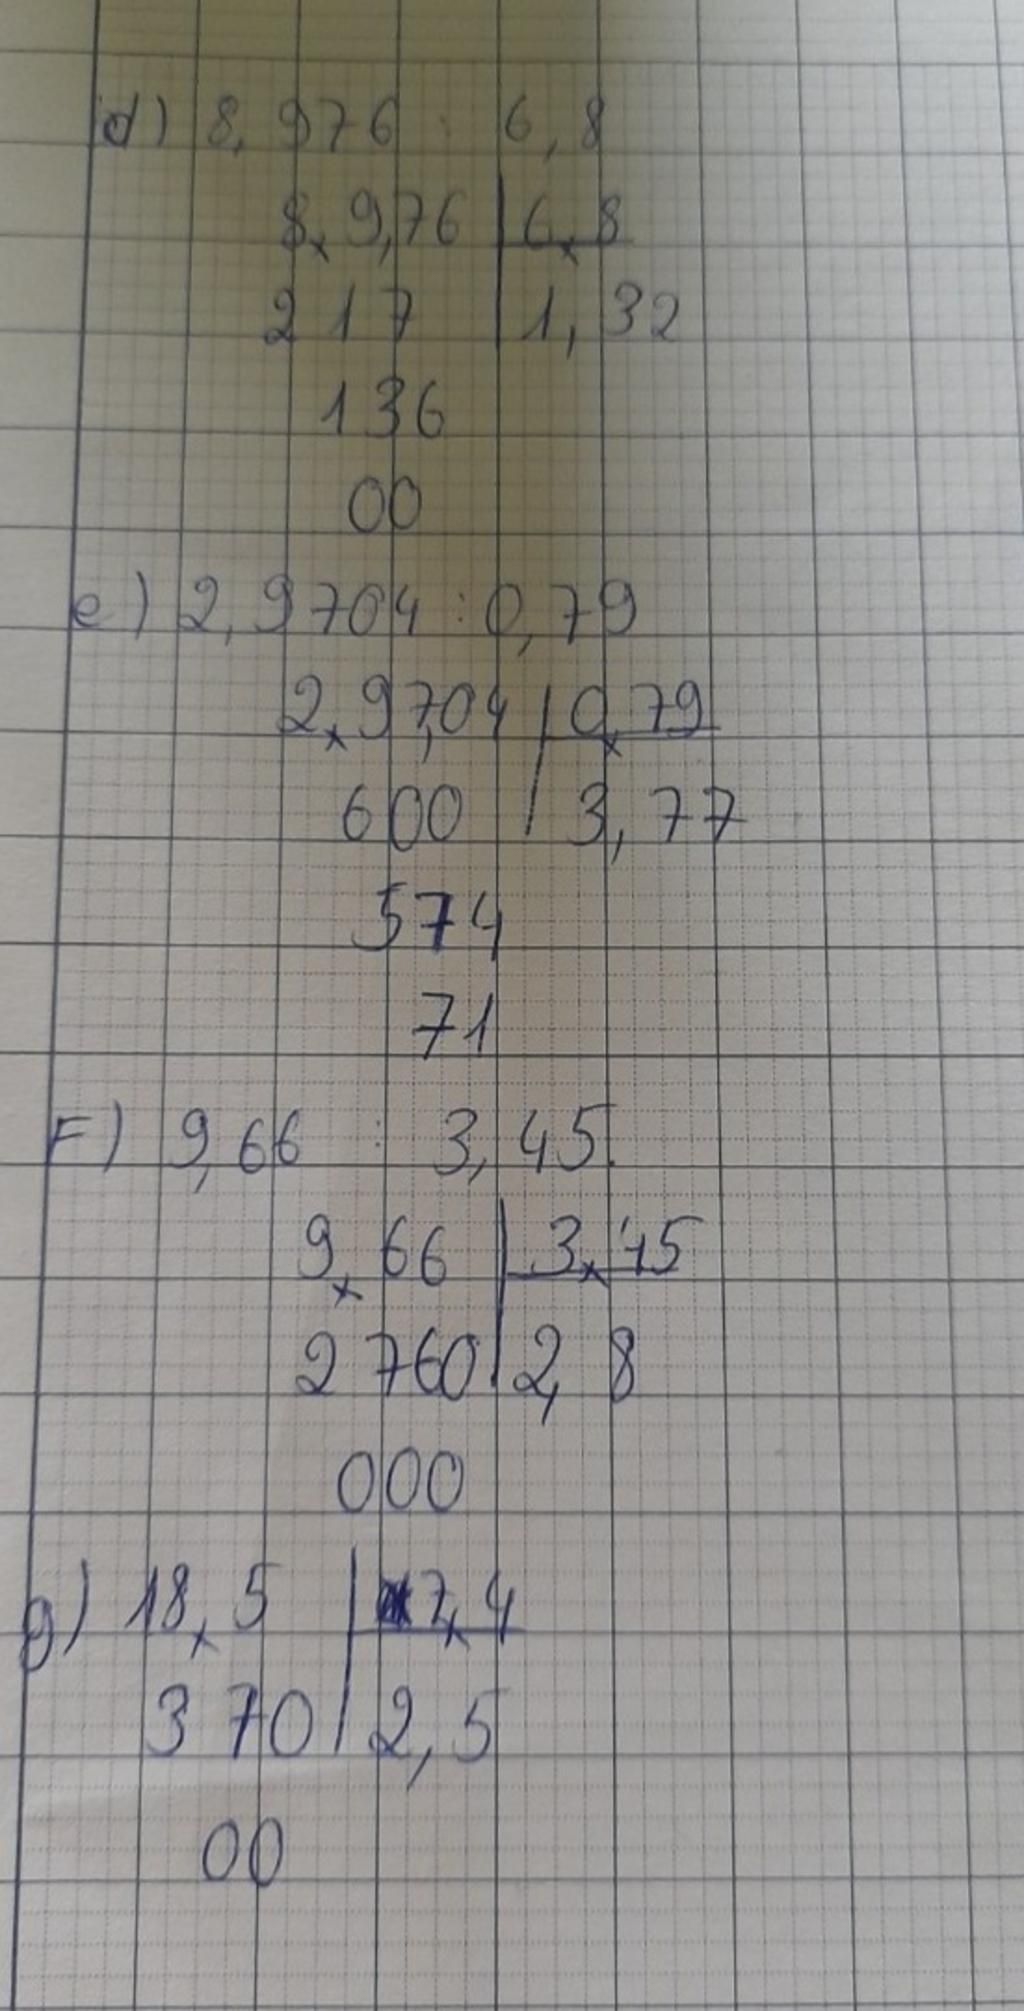 d) 8,976 : 6,8
8,9,76 | 6,8
217 | 1,32
136
00
e) 2,9704 : 0,79
2,97,04 | 0,79
600 | 3,77
574
71
F) 9,66 : 3,45.
9,66 | 3,45
2760 | 2,8
000
g) 18,5 | 7,4
370 | 2,5
00